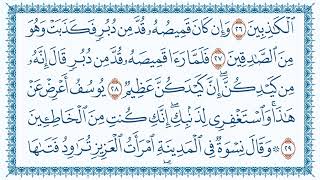 ٱلْكَٰذِبِينَ ٢٦ وَإِن كَانَ قَمِيصُهُۥ قُدَّ مِن دُبُرٍ فَكَذَبَتْ وَهُوَ
مِنَ ٱلصَّٰدِقِينَ ٢٧ فَلَمَّا رَءَا قَمِيصَهُۥ قُدَّ مِن دُبُرٍ قَالَ إِنَّهُۥ
مِن كَيْدِكُنَّ ۖ إِنَّ كَيْدَكُنَّ عَظِيمٌ ٢٨ يُوسُفُ أَعْرِضْ عَنْ
هَٰذَا ۚ وَٱسْتَغْفِرِى لِذَنۢبِكِ ۖ إِنَّكِ كُنتِ مِنَ ٱلْخَاطِـِٔينَ
٢٩ ۞ وَقَالَ نِسْوَةٌ فِى ٱلْمَدِينَةِ ٱمْرَأَتُ ٱلْعَزِيزِ تُرَٰوِدُ فَتَىٰهَا